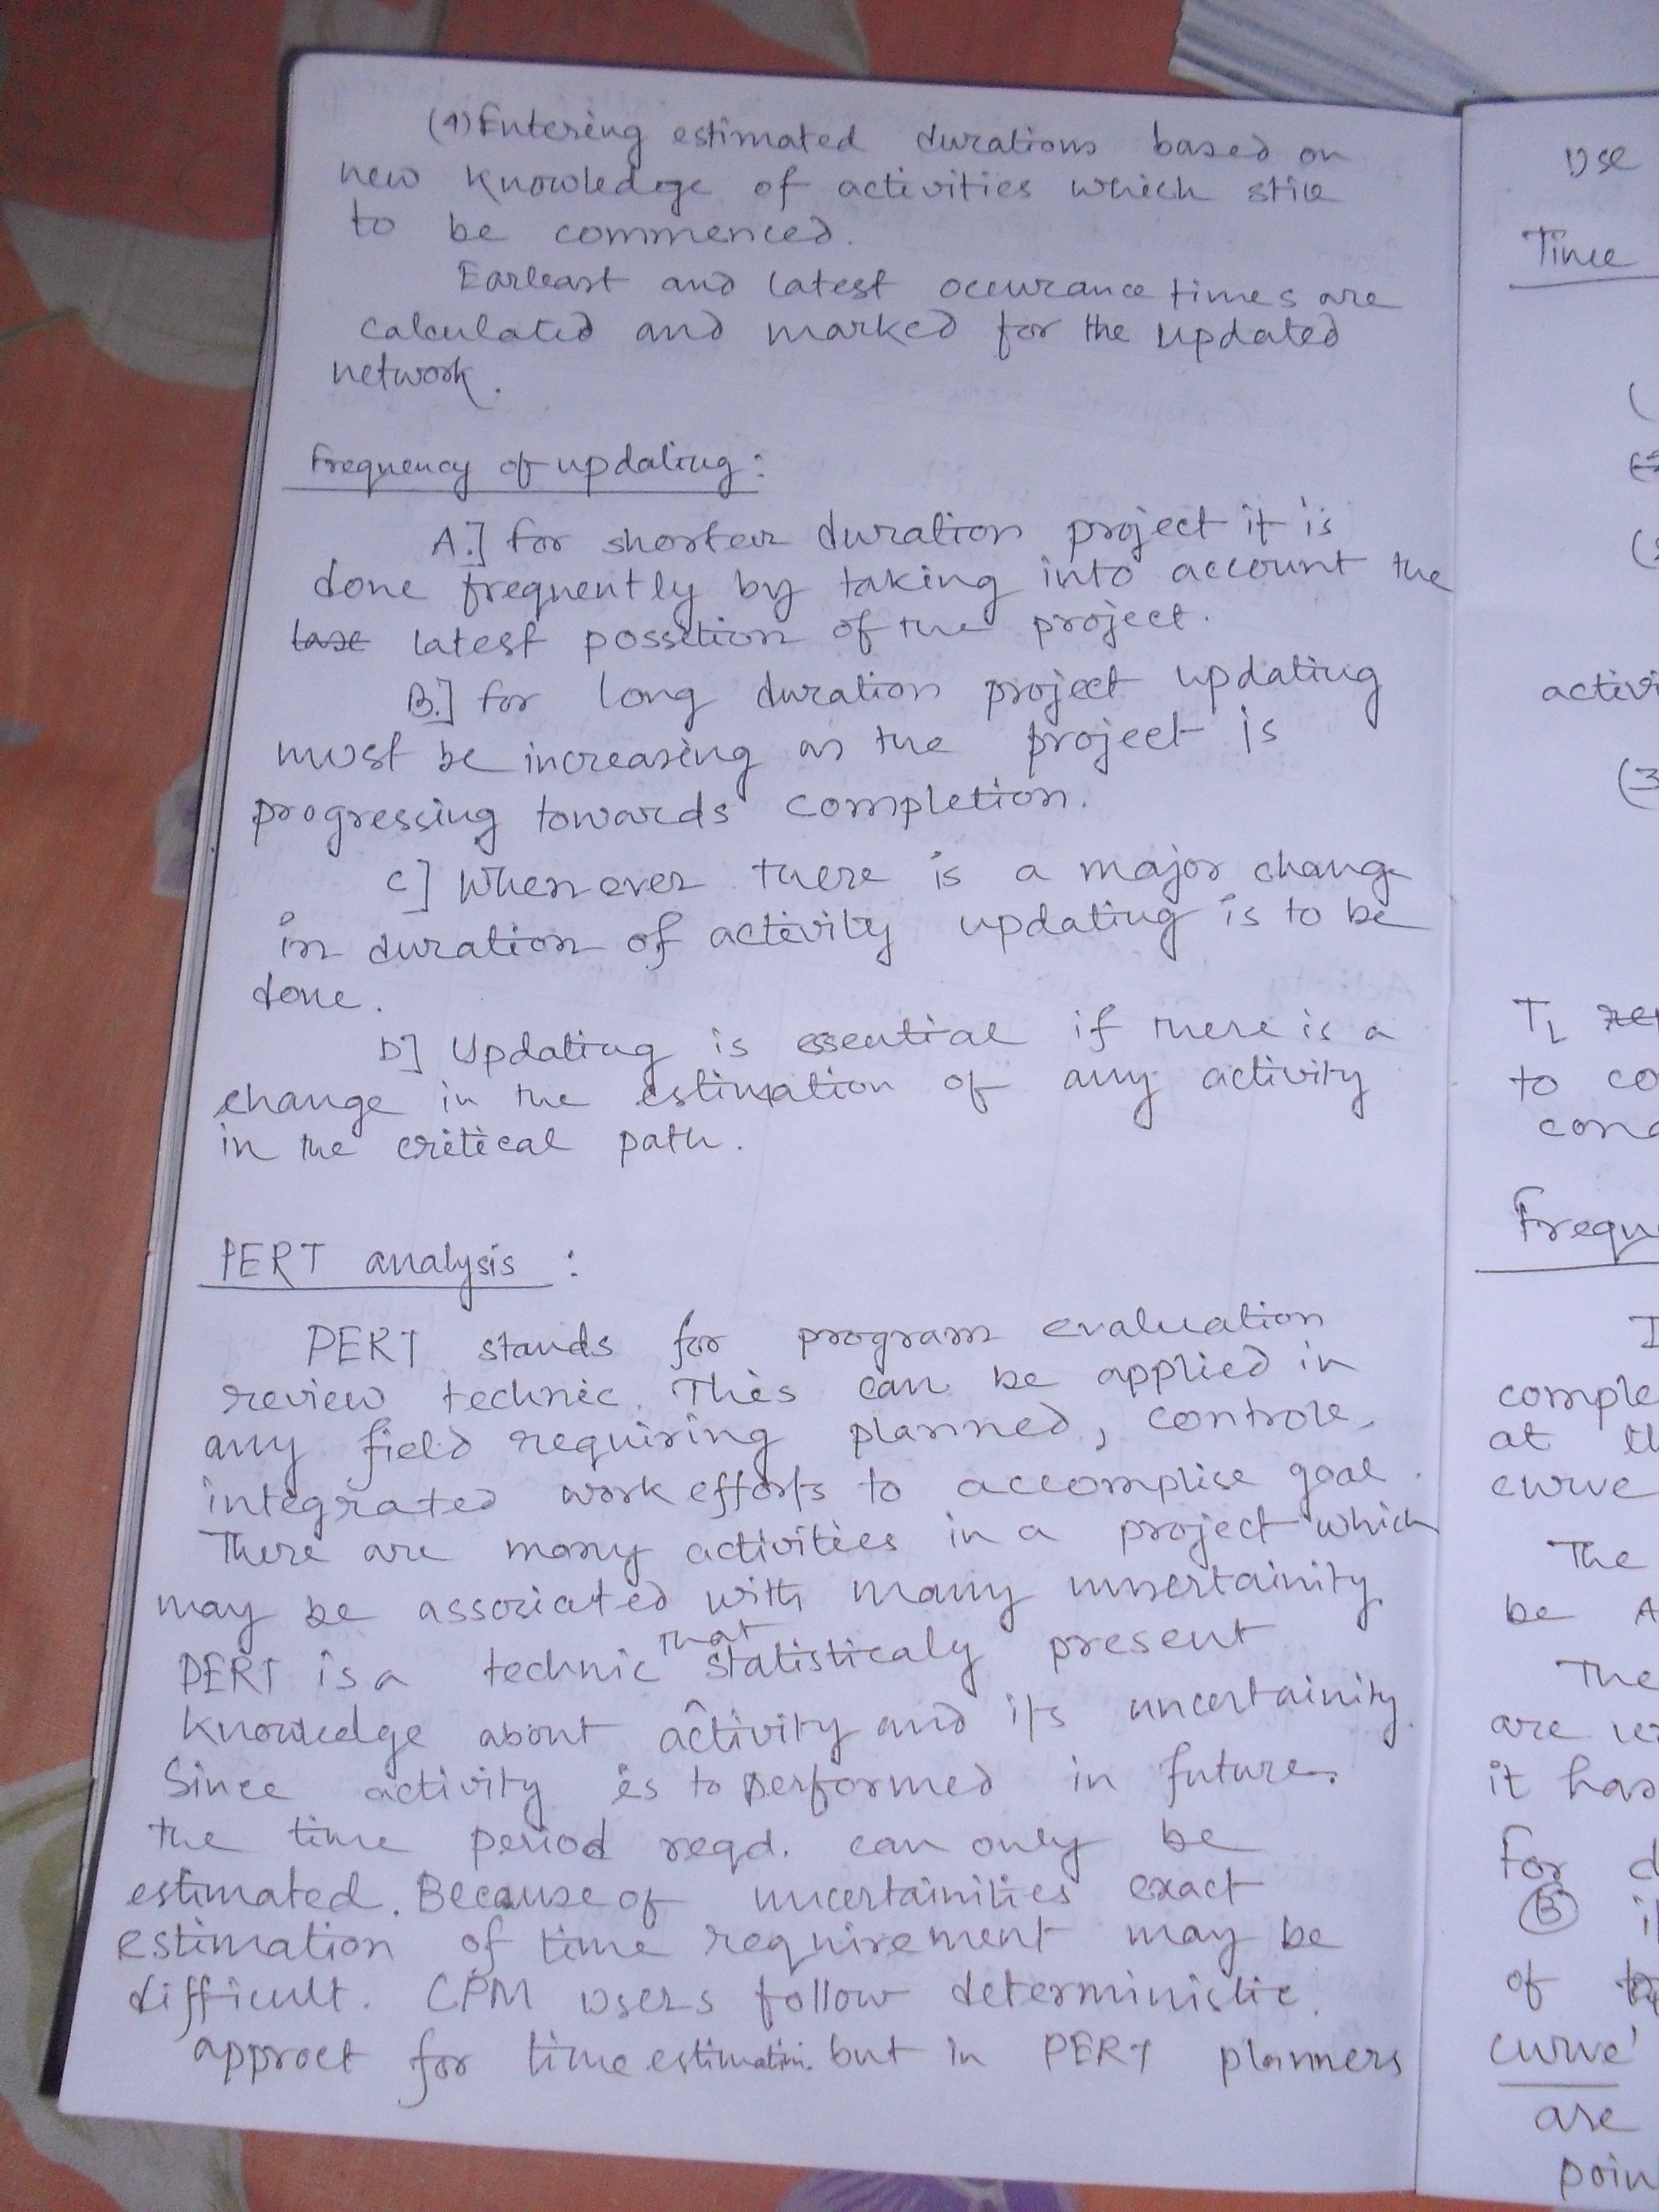 (4) Entering estimated durations based on
new knowledge of activities which still
to be commenced.
Earleast and latest occurance times are
calculated and marked for the updated
network.
Frequency of updating :
A.] for shorter duration project it is
done frequently by taking into account the
latest possition of the project.
B.] for long duration project updating
must be increasing as the project is
progressing towards completion.
C] Whenever there is a major change
in duration of activity updating is to be
done.
D] Updating is essential if there is a
change in the estimation of any activity
in the critical path.
PERT analysis :
PERT stands for program evaluation
review technic. This can be applied in
any field requiring planned, controle,
integrated work efforts to accomplise goal.
There are many activities in a project which
may be associated with many unsertainity.
PERT is a technic that statisticaly present
knowledge about activity and its uncertainity.
Since activity is to performed in future.
the time period reqd. can only be
estimated. Because of uncertainities exact
estimation of time requirement may be
difficult. CPM users follow deterministic.
approct for time estimatin. but in PERT planners
Use
Time
(3
activi
TL
to co
cond
Frequ
comple
at th
curve
The
be A
The
are
it has
For d
(B) i
of
curve'
are
poin